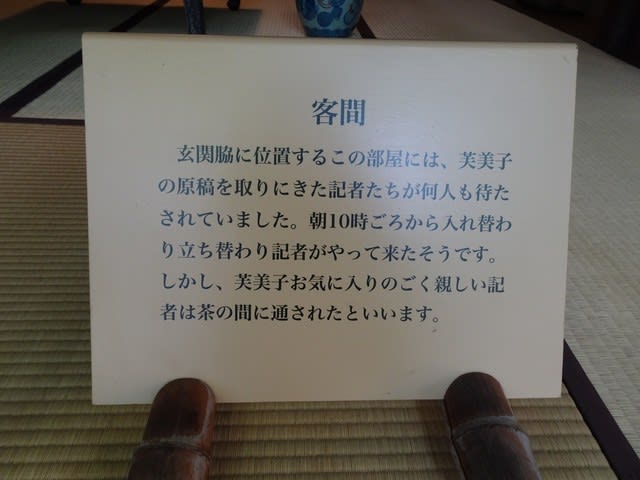 客間
玄関脇に位置するこの部屋には、芙美子
の原稿を取りにきた記者たちが何人も待た
されていました。朝10時ごろから入れ替わ
り立ち替わり記者がやって来たそうです。
しかし、芙美子お気に入りのごく親しい記
者は茶の間に通されたといいます。